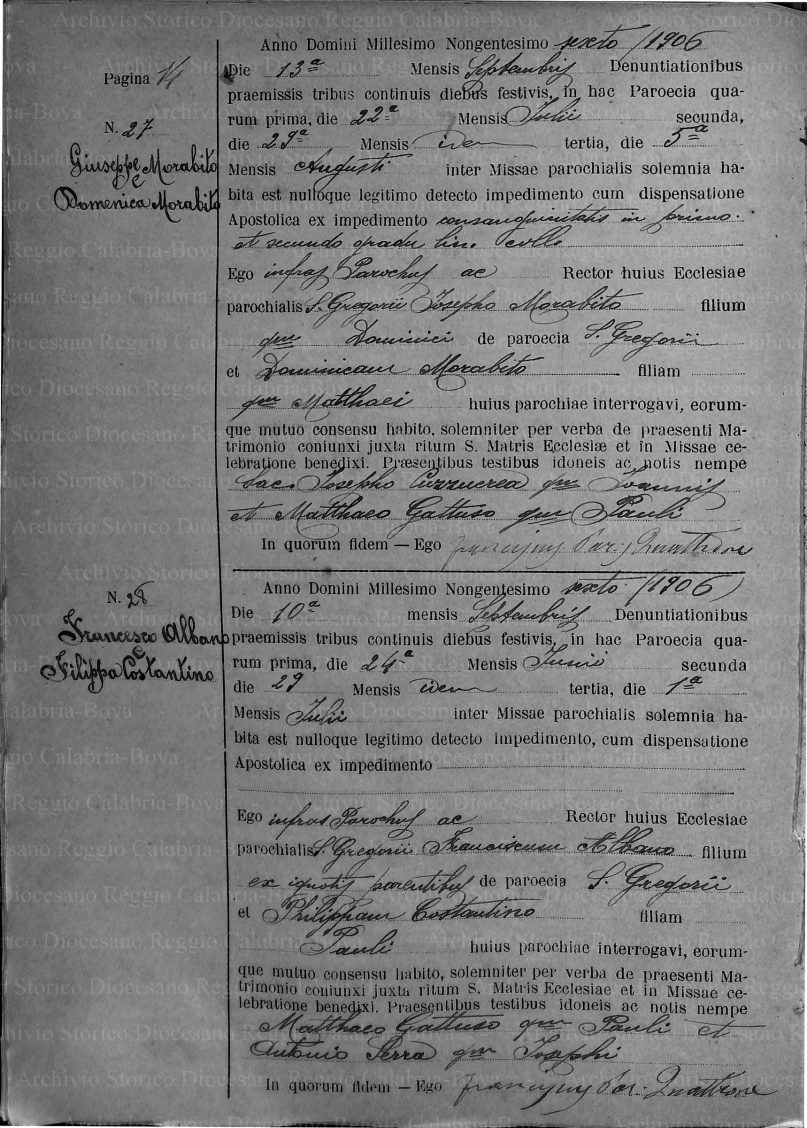 Pagina 14
N. 27
Giuseppe Morabito
e
Domenica Morabito
Anno Domini Millesimo Nongentesimo sexto /1906
Die 13ª Mensis Septembris Denuntiationibus
praemissis tribus continuis diebus festivis, in hac Paroecia qua-
rum prima, die 22ª Mensis Julii secunda,
die 29ª Mensis idem tertia, die 5ª
Mensis Augusti inter Missae parochialis solemnia ha-
bita est nulloque legitimo detecto impedimento cum dispensatione
Apostolica ex impedimento consanguinitatis in primo
et secundo gradu lin. colle
Ego infras Parochus ac Rector huius Ecclesiae
parochialis S. Gregorii Josepho Morabito filium
qm Dominici de paroecia S. Gregorii
et Dominicam Morabito filiam
qm Matthaei huius parochiae interrogavi, eorum-
que mutuo consensu habito, solemniter per verba de praesenti Ma-
trimonio coniunxi juxta ritum S. Matris Ecclesiæ et in Missae ce-
lebratione benedixi. Præsentibus testibus idoneis ac notis nempe
Sac. Josepho Cuzzucrea qm Joannis
et Matthaeo Gattuso qm Pauli
In quorum fidem — Ego Par. Quattrone
N. 28
Francesco Albano
e
Filippa Costantino
Anno Domini Millesimo Nongentesimo sexto (1906)
Die 10ª mensis Septembris Denuntiationibus
praemissis tribus continuis diebus festivis, in hac Paroecia qua-
rum prima, die 24ª Mensis Junii secunda
die 29 Mensis idem tertia, die 1ª
Mensis Julii inter Missae parochialis solemnia ha-
bita est nulloque legitimo detecto impedimento, cum dispensatione
Apostolica ex impedimento
Ego infras Parochus ac Rector huius Ecclesiae
parochialis S. Gregorii Franciscum Albano filium
ex ignotis parentibus de paroecia S. Gregorii
et Philippam Costantino filiam
Pauli huius parochiae interrogavi, eorum-
que mutuo consensu habito, solemniter per verba de praesenti Ma-
trimonio coniunxi juxta ritum S. Matris Ecclesiae et in Missae ce-
lebratione benedixi. Praesentibus testibus idoneis ac notis nempe
Matthaeo Gattuso qm Pauli et
Antonio Serra qm Josephi
In quorum fidem — Ego Par. Quattrone